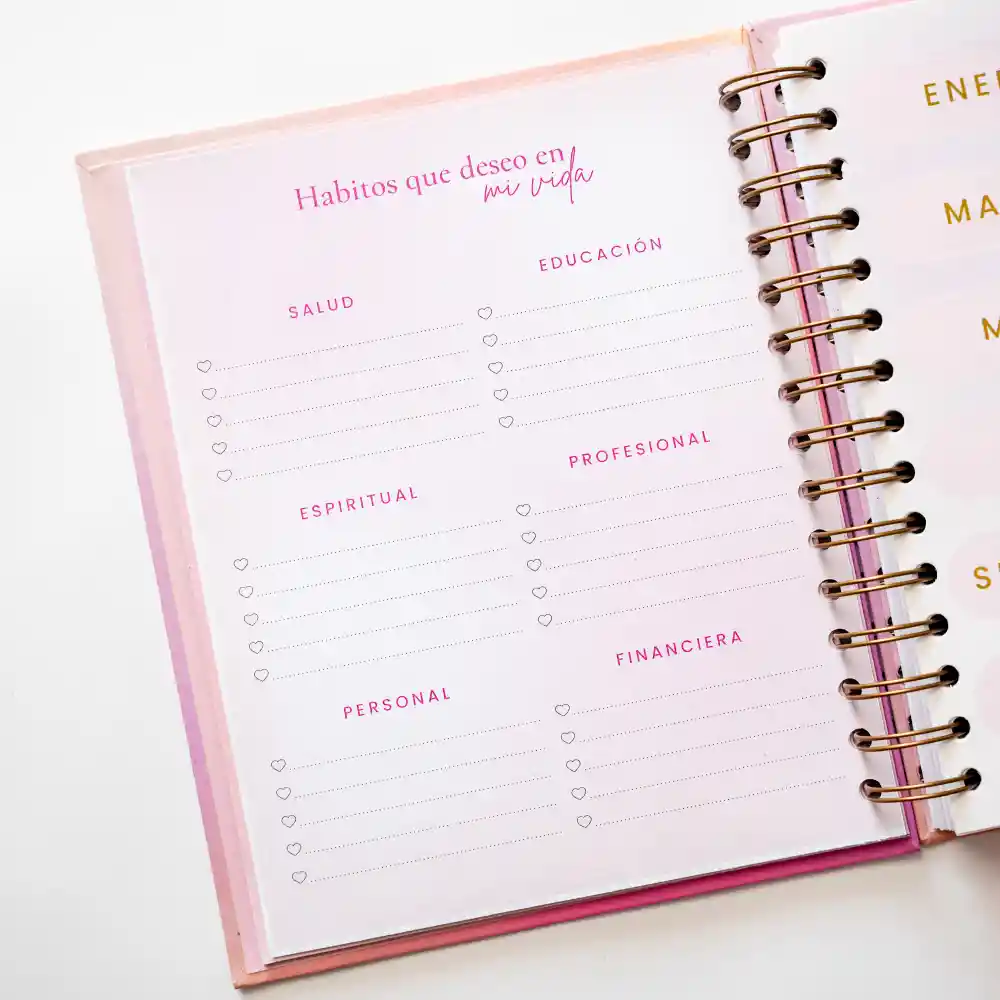 Habitos que deseo en
mi vida
SALUD
EDUCACIÓN
ESPIRITUAL
PROFESIONAL
PERSONAL
FINANCIERA
ENE
MA
M